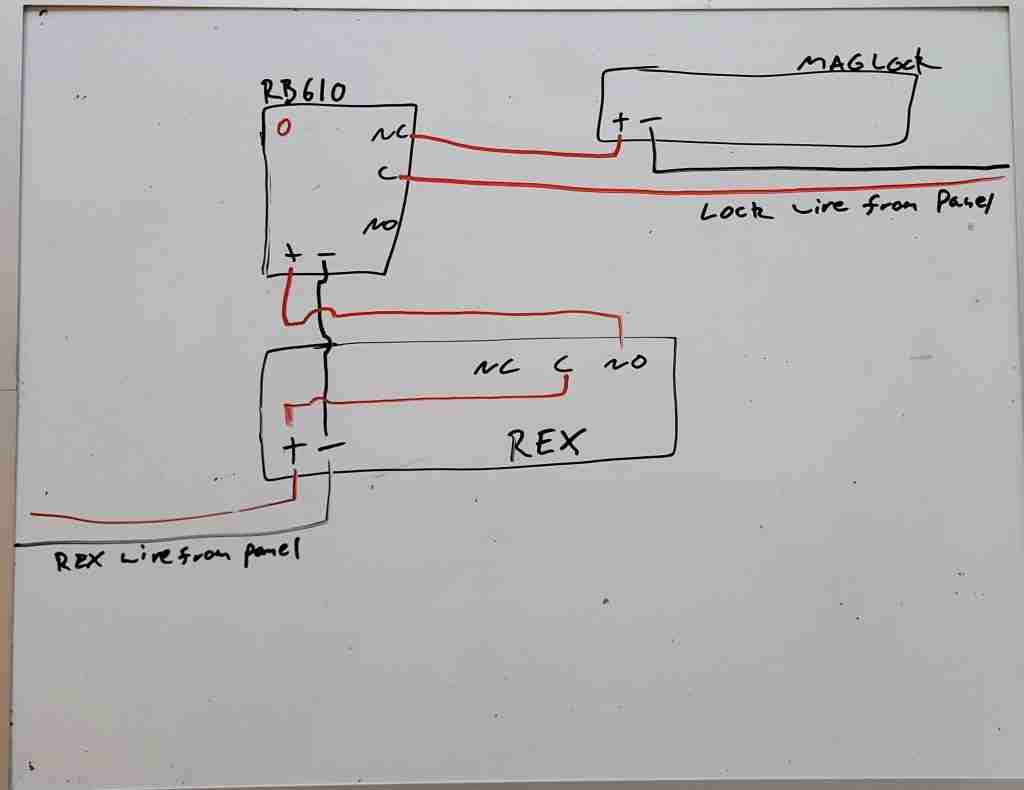 MAGLock
RB610
O
NC
+ −
C
Lock wire from Panel
NO
+ −
NC C NO
+ −
REX
REX wire from panel